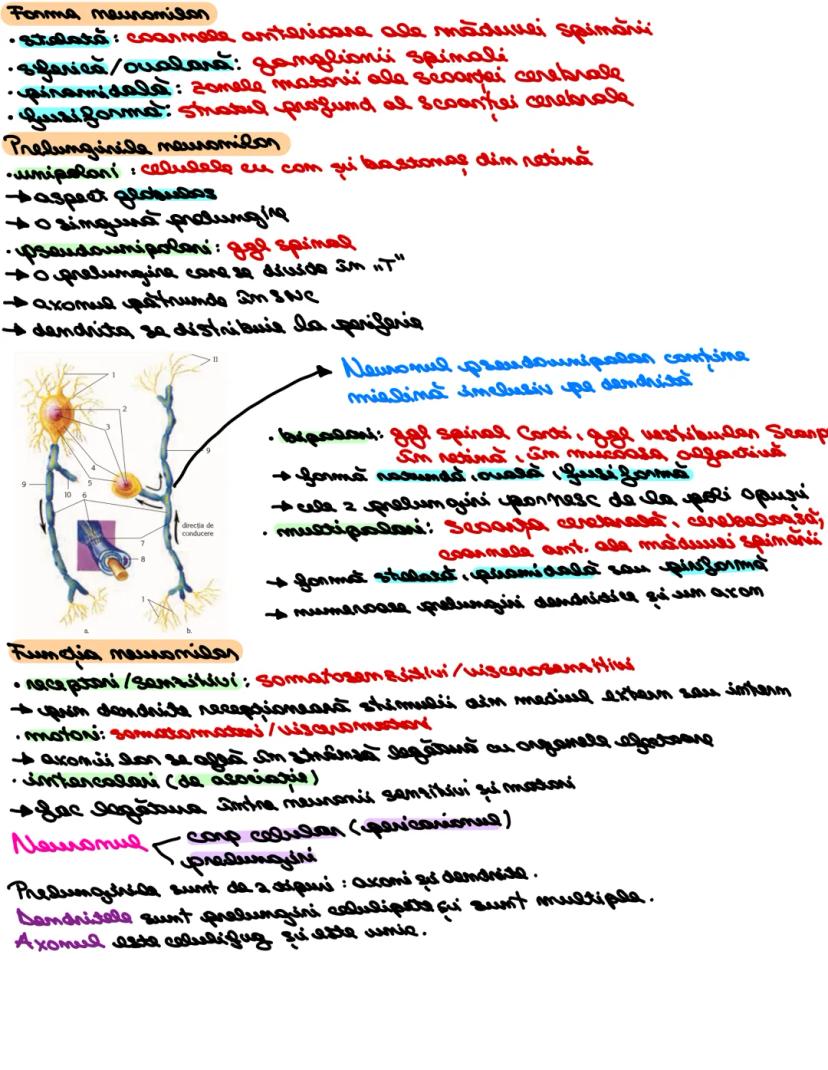 Forma neuronilor
• stelată: coarnele anterioare ale măduvei spinării
• sferică/ovalară: ganglionii spinali
• piramidală: zonele motorii ale scoarței cerebrale
• fusiformă: stratul profund al scoarței cerebrale
Prelungirile neuronilor
• unipolari: celulele cu con și bastonaș din retină
→ aspect globulos
→ o singură prelungire
• pseudounipolari: ggl spinal
→ o prelungire care se divide în „T"
→ axonul pătrunde în SNC
→ dendrita se distribuie la periferie
Neuronul pseudounipolar conține
mielină inclusiv pe dendrită
• bipolari: ggl spiral Corti, ggl vestibular Scarp
în retină, în mucoasa olfactivă
→ formă rotundă, ovală, fusiformă
→ cele 2 prelungiri pornesc de la poli opuși
• multipolari: scoarța cerebrală, cerebeloasă,
coarnele ant. ale măduvei spinării
→ formă stelată, piramidală sau piriformă
→ numeroase prelungiri dendritice și un axon
1
2
3
4
5
6
7
8
9
10
9
11
1
direcția de
conducere
a.
b.
Funcția neuronilor
• receptori/senzitivi: somatosenzitivi/viscerosenzitivi
→ prin dendrite recepționează stimulii din mediul extern sau intern
• motori: somatomotori/visceromotori
→ axonii lor se află în strânsă legătură cu organele efectoare
• intercalari (de asociație)
→ fac legătura între neuronii senzitivi și motori
Neuronul
corp celular (pericarionul)
prelungiri
Prelungirile sunt de 2 tipuri: axoni și dendrite.
Dendritele sunt prelungiri celulipete și sunt multiple.
Axonul este celulifug și este unic.